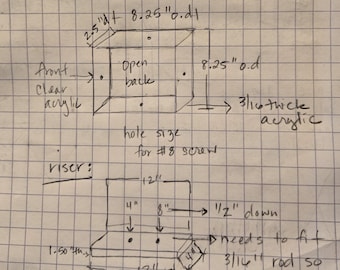 2.5"d
8.25" o.d
front
clear
acrylic
open
back
8.25" o.d
3/16 thick
acrylic
hole size
for #8 screw
riser:
12"
4"
8"
1/2" down
needs to fit
3/16" rod so
4"
12"